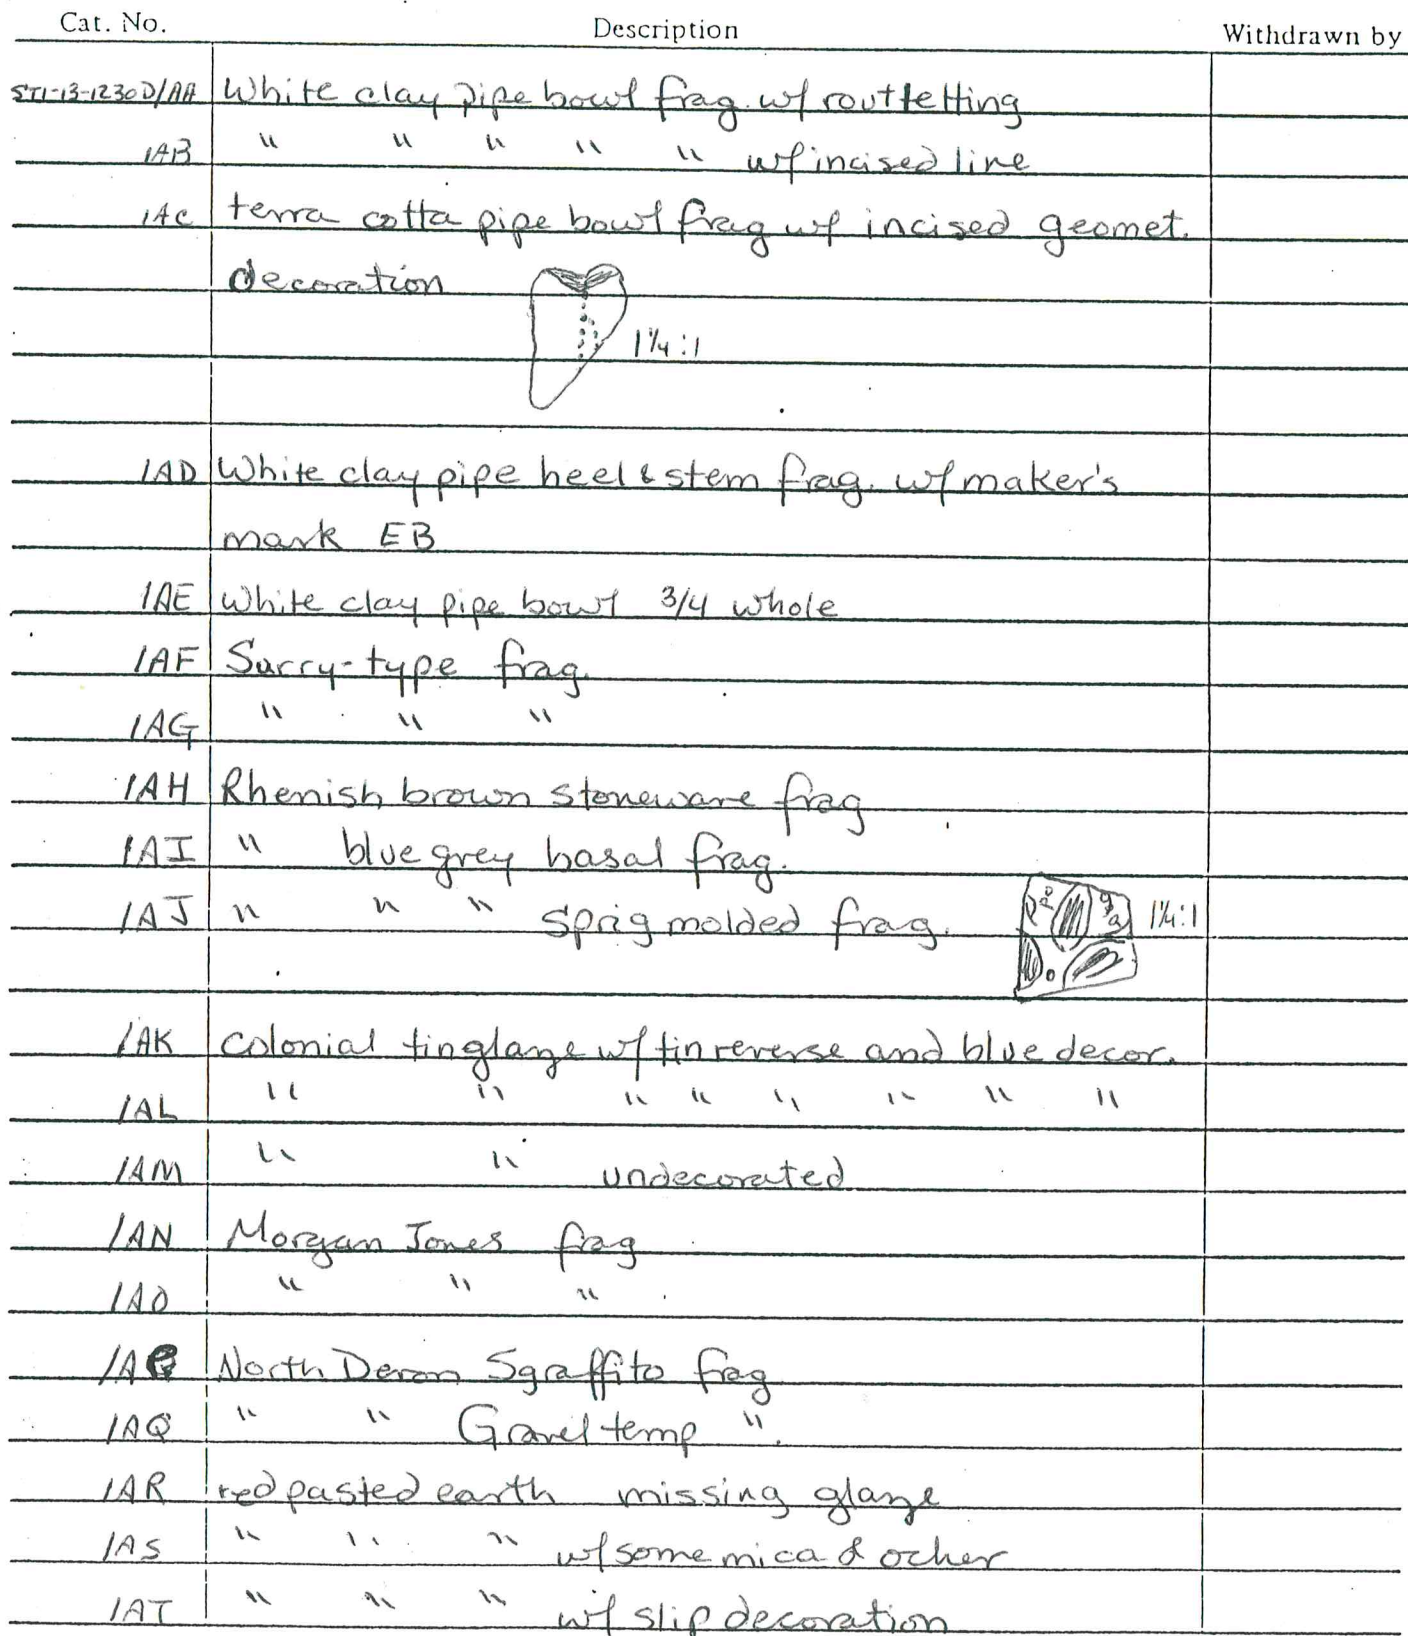 Cat. No. Description Withdrawn by
ST1-13-1230D/AA White clay pipe bowl frag. w/ routtetting
/AB " " " " " w/ incised line
/AC terra cotta pipe bowl frag w/ incised geomet.
decoration
1¼:1
/AD White clay pipe heel & stem frag. w/ maker's
mark EB
/AE White clay pipe bowl 3/4 whole
/AF Surry-type frag.
/AG " " "
/AH Rhenish brown stoneware frag
/AI " blue grey basal frag.
/AJ " " " Sprig molded frag. 1¼:1
/AK Colonial tinglaze w/ tin reverse and blue decor.
/AL " " " " " " " "
/AM " " undecorated
/AN Morgan Jones frag
/AO " " "
/AP North Devon Sgraffito frag
/AQ " " Gravel temp "
/AR red pasted earth missing glaze
/AS " " " w/ some mica & ocher
/AT " " " w/ slip decoration